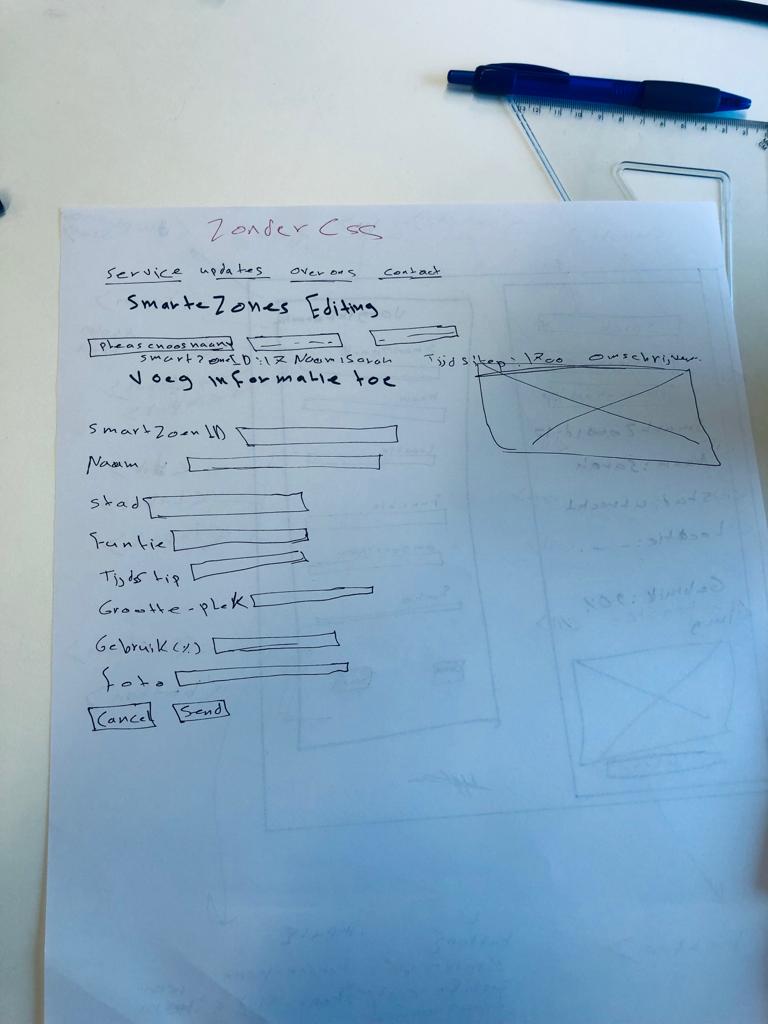 Zonder Css
service updates over ons contact
Smarte Zones Editing
pleas choos naam
SmartzoneID:17 Naam:Sarah Tijdstep:1700 omschrijven.
Voeg informatie toe
SmartZoen ID
Naam
stad
funtie
Tijdstip
Grootte-plek
Gebruik(%)
foto
Cancel Send